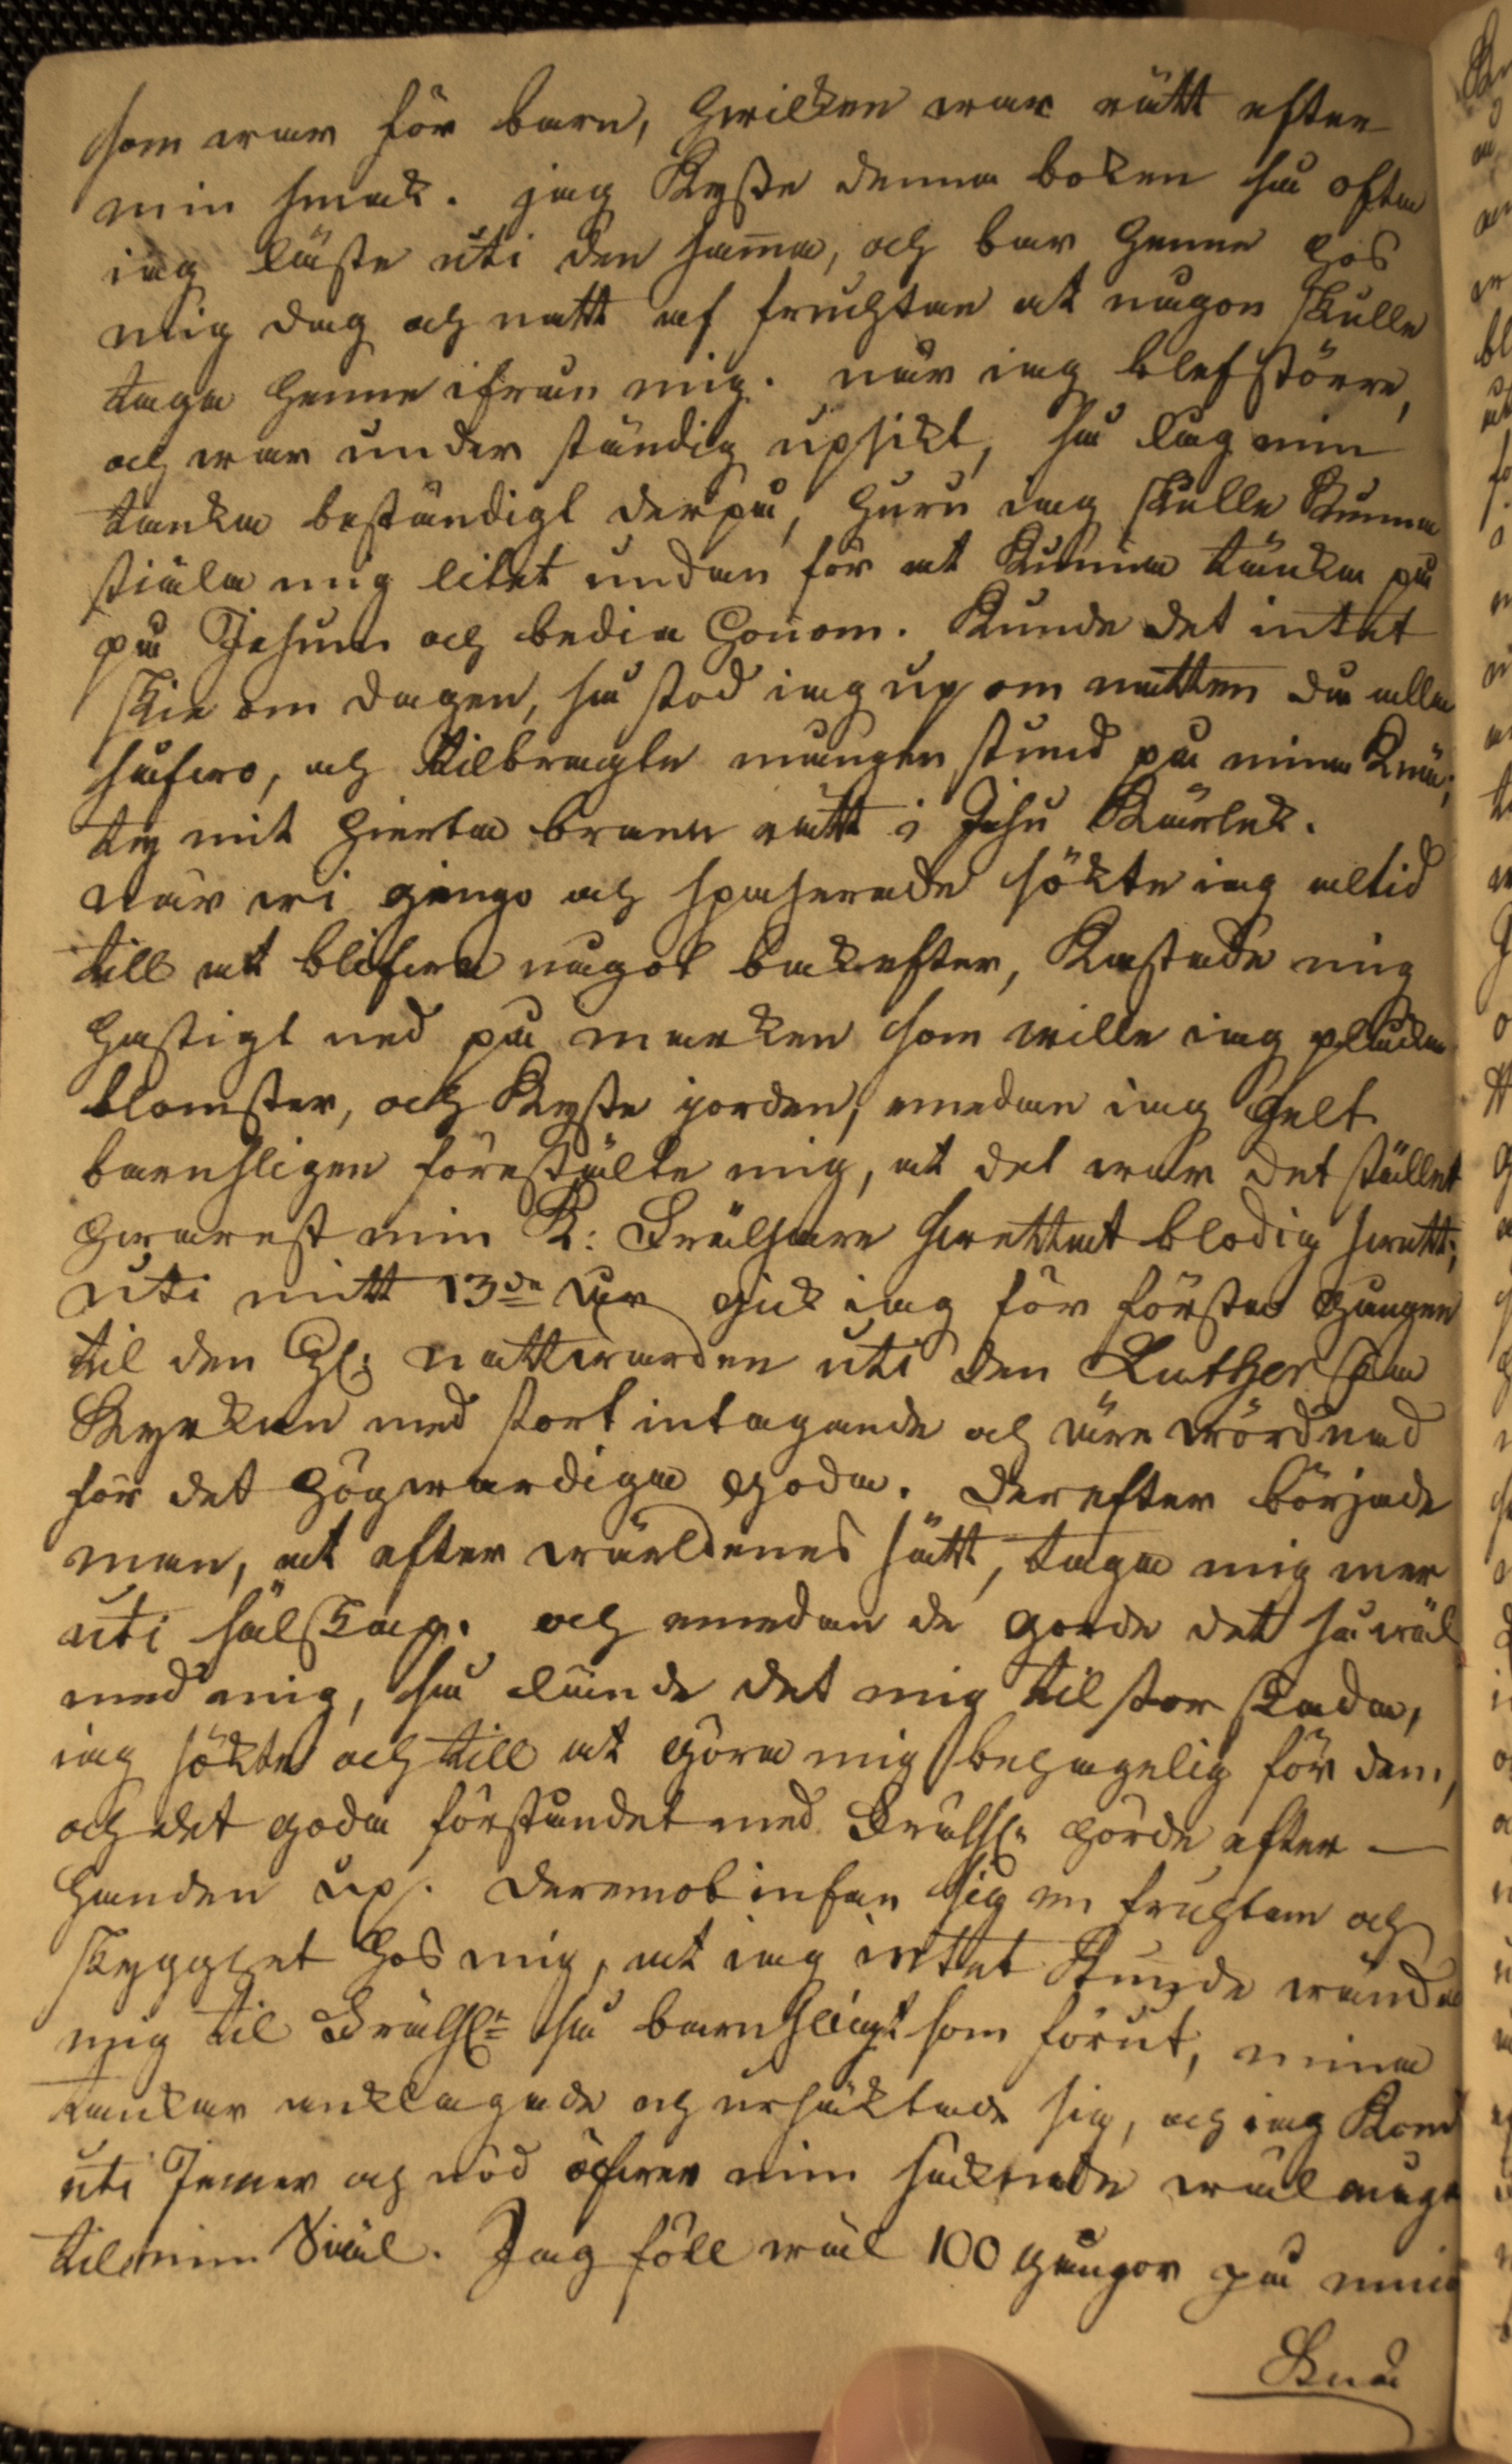 som war för barn, hwilken war rätt efter
min smak. jag kyste denna boken så ofta
iag läste uti den sam̄a, och bar henne hos
mig dag och natt af fruchtan at någon skulle
taga henne ifrån mig. när iag blef större,
och war under ständig upsikt, så låg min
tanka beständigt derpå, huru iag skulle kunna
stiäla mig litet undan för at kunna tänka på
på Jesum och bedia honom. Kunde det intet
skie om dagen, så stod iag up om natten då alla
såfwo, och tilbragte mången stund på mina knä;
ty mit hierta brann rätt i Jesu kärlek.
när wi gingo och spaserade sökte iag altid
till at blifwa något bakefter, kastade mig
hastigt ned på marken som wille iag plåcka
blomster, och kyste jorden, emedan iag helt
barnsligen förestälte mig, at det war det stället
hwarest min K: Frälsare swettat blodig swett;
uti mitt 13de år gick iag för första gången
til den Hl: nattwarden uti den Lutherska
Kyrkan med stort intagande och wörd̄nad
för det högwärdiga goda. Derefter började
man, at efter wärldenes sätt, taga mig mer
uti sälskap. och emedan de gorde det så wäl
med mig, så lände det mig til stor skada,
iag sökte och till at göra mig behagelig för dem,
och det goda förståndet med Frälsn: hörde efter –
handen up. Deremot infan sig en fruchtan och
skygghet hos mig, at iag intet kunde wända
mig til Frälsn: så barnsligt som förut, mina
tankar anklagade och ursäktade sig, och iag kom
uti Jemer och nöd öfwer min saknade wälmåga
til min Siäl. Jag föll wäl 100 gångor på mina
Knä